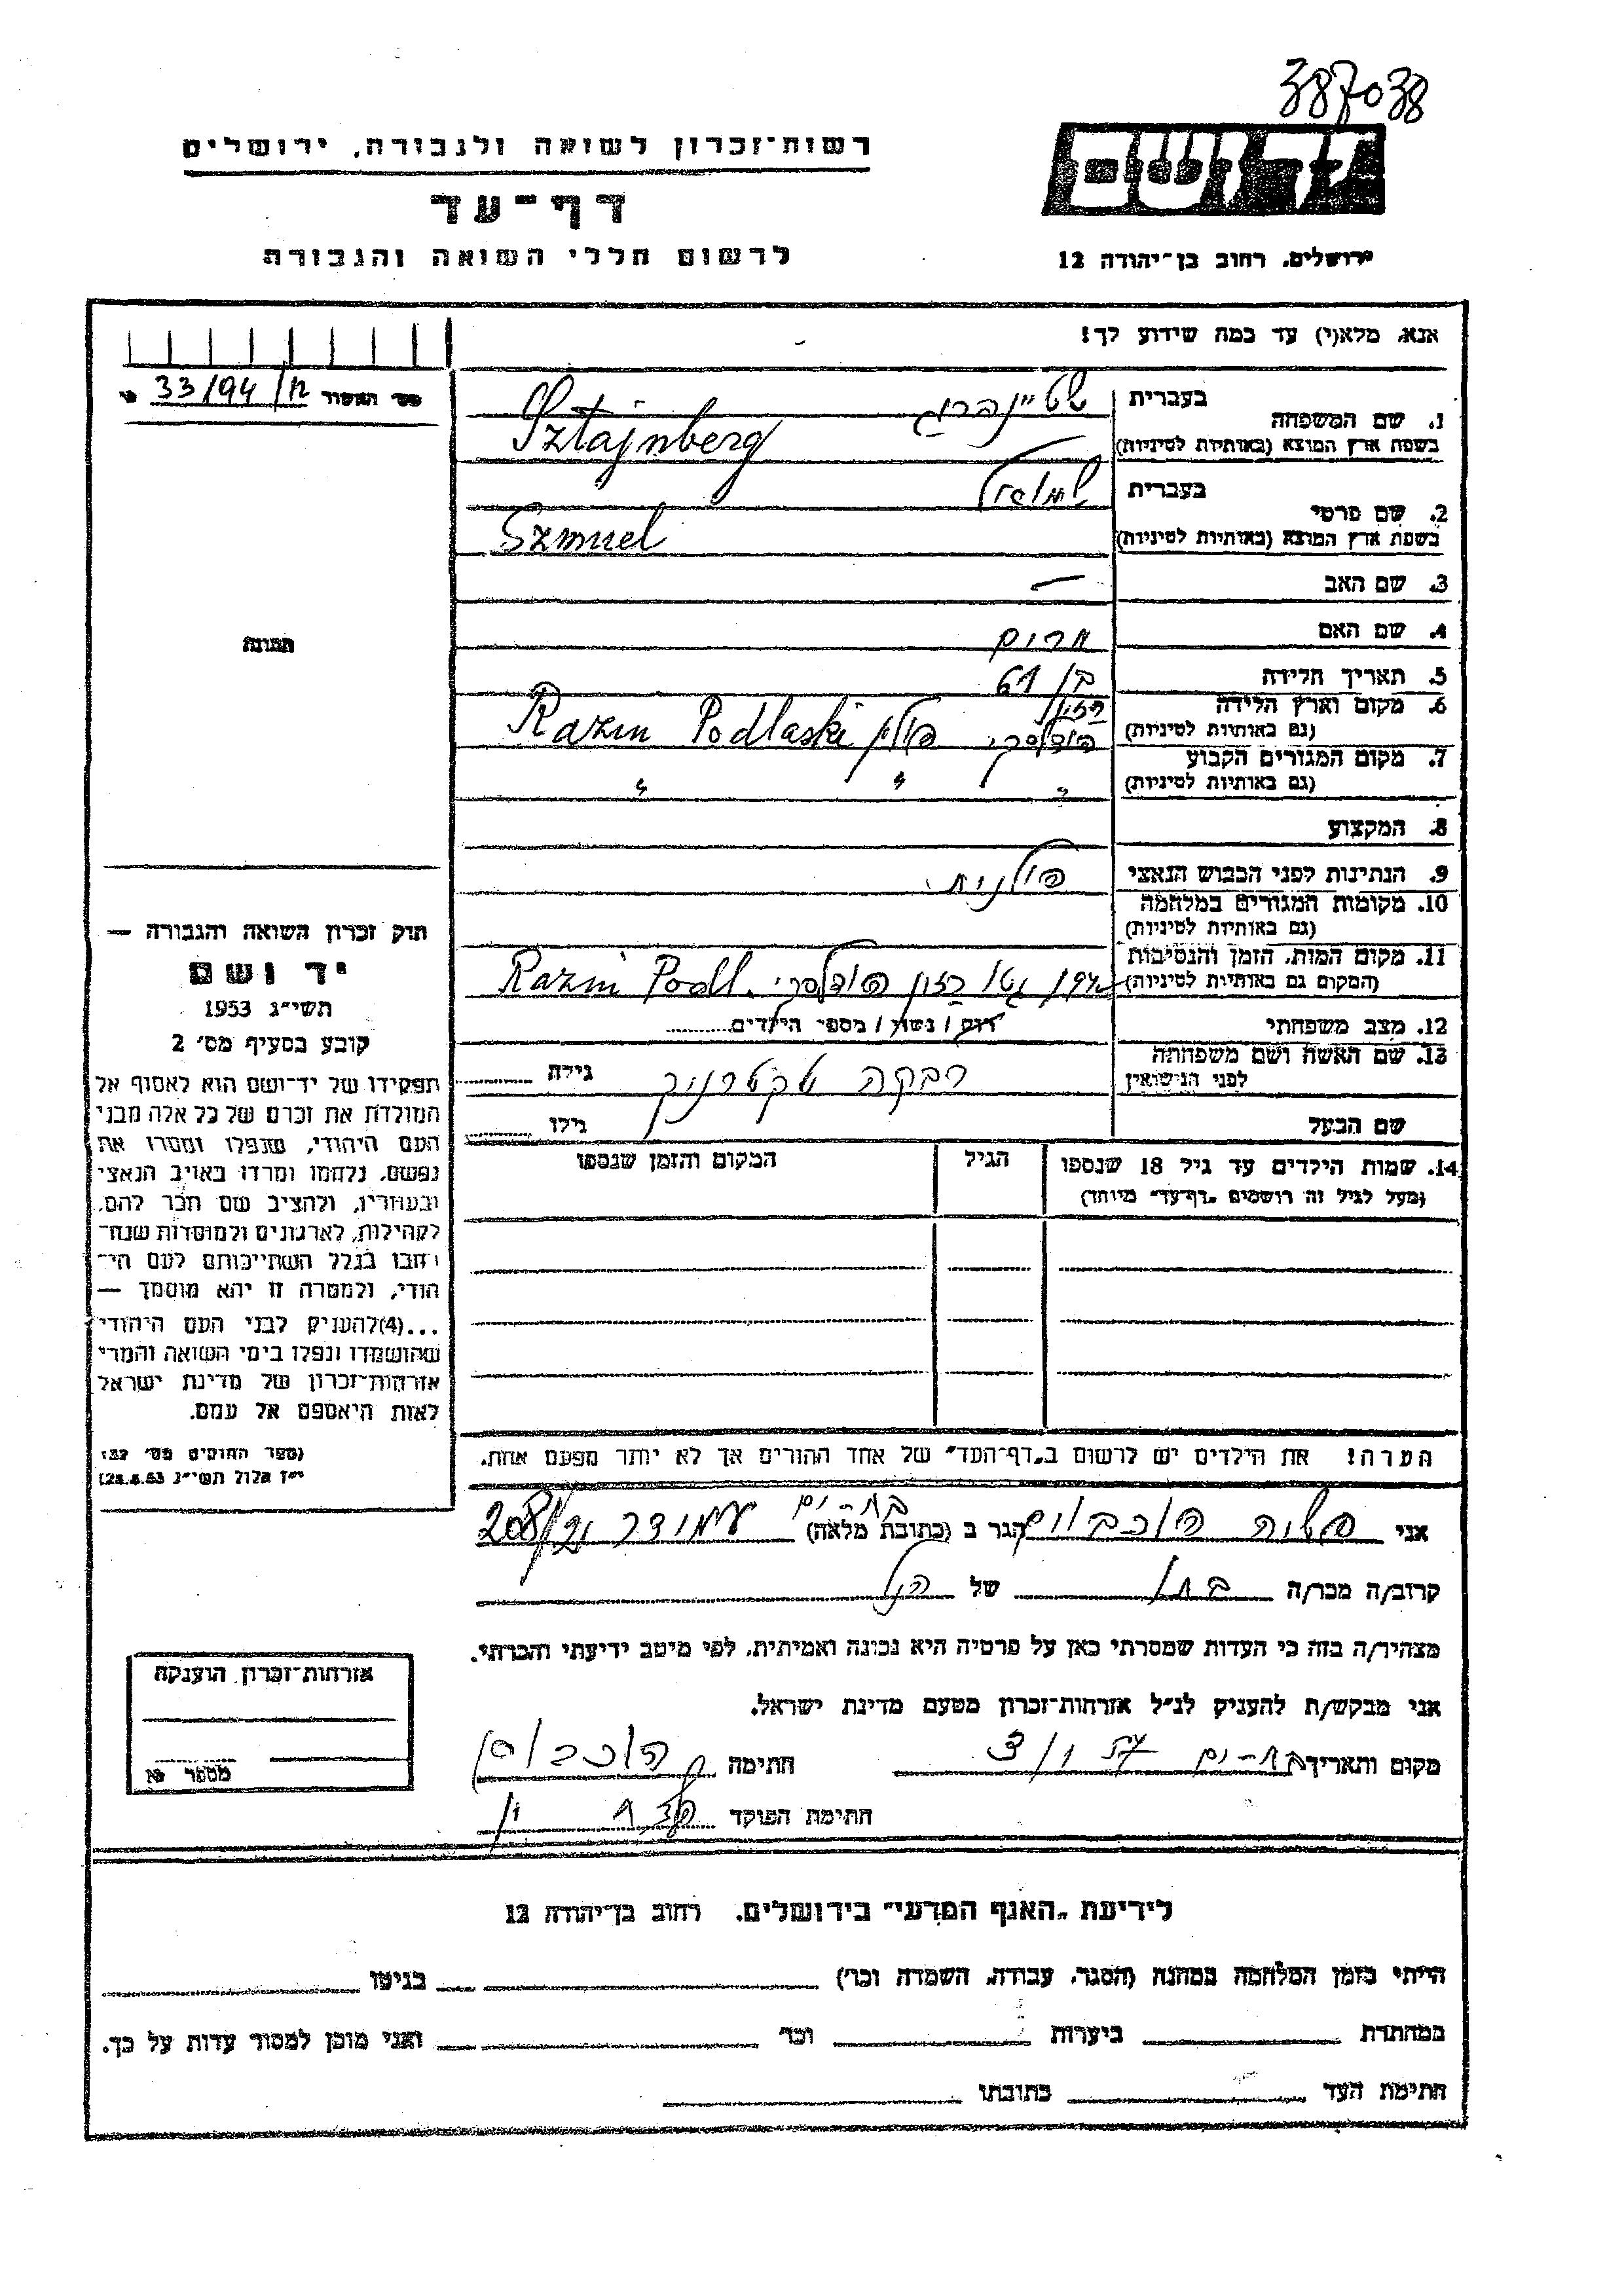 387038
רשות־זכרון לשואה ולגבורה, ירושלים
יד ושם
דף־עד
לרשום חללי השואה והגבורה
ירושלים, רחוב בן־יהודה 12
אנא, מלא(י) עד כמה שידוע לך!
מס׳ האסור 33/94/ח
1. שם המשפחה
בעברית שטיינברג
בשפת ארץ המוצא (באותיות לטיניות) Sztajnberg
2. שם פרטי
בעברית שמואל
בשפת ארץ המוצא (באותיות לטיניות) Szmuel
3. שם האב —
4. שם האם מרים
5. תאריך הלידה בן 61
6. מקום וארץ הלידה
(גם באותיות לטיניות) פודלסקי פולין Razin Podlaski
7. מקום המגורים הקבוע
(גם באותיות לטיניות) " " "
8. המקצוע
9. הנתינות לפני הכבוש הנאצי פולנית
10. מקומות המגורים במלחמה
(גם באותיות לטיניות)
11. מקום המות, הזמן והנסיבות
(המקום גם באותיות לטיניות) 1942 גטו רזין פודלסקי. Razin Podl.
12. מצב משפחתי רוק / נשוי / מספר הילדים
13. שם האשה ושם משפחתה
לפני הנישואין רבקה גילה
שם הבעל גילו
14. שמות הילדים עד גיל 18 שנספו
(מעל לגיל זה רושמים „דף־עד" מיוחד)
הגיל
המקום והזמן שנספו
הערה! את הילדים יש לרשום ב„דף־העד" של אחד ההורים אך לא יותר מפעם אחת.
תמונה
חוק זכרון השואה והגבורה —
יד ושם
תשי״ג 1953
קובע בסעיף מס׳ 2
תפקידו של יד־ושם הוא לאסוף אל
המולדת את זכרם של כל אלה מבני
העם היהודי, שנפלו ומסרו את
נפשם, נלחמו ומרדו באויב הנאצי
ובעוזריו, ולהציב שם וזכר להם,
לקהילות, לארגונים ולמוסדות שנח־
רבו בגלל השתייכותם לעם הי־
הודי, ולמטרה זו יהא מוסמך —
...(4) להעניק לבני העם היהודי
שהושמדו ונפלו בימי השואה והמרי
אזרחות־זכרון של מדינת ישראל
לאות היאספם אל עמם.
(ספר החוקים מס׳ 132
י״ז אלול תשי״ג 28.8.53)
אני הגר ב (כתובת מלאה) בת-ים עמידר 208/21
קרוב/ה מכר/ה בתו של הנ״ל
מצהיר/ה בזה כי העדות שמסרתי כאן על פרטיה היא נכונה ואמיתית, לפי מיטב ידיעתי והכרתי.
אני מבקש/ת להעניק לנ״ל אזרחות־זכרון מטעם מדינת ישראל.
מקום ותאריך בת-ים חתימה
חתימת הפוקד
אזרחות־זכרון הוענקה
מספר
לידיעת „האגף המדעי" בירושלים, רחוב בן־יהודה 12
הייתי בזמן המלחמה במחנה (הסגר, עבודה, השמדה וכר׳) בגיטו
במחתרת ביערות וכר׳ ואני מוכן למסור עדות על כך.
חתימת העד כתובתו